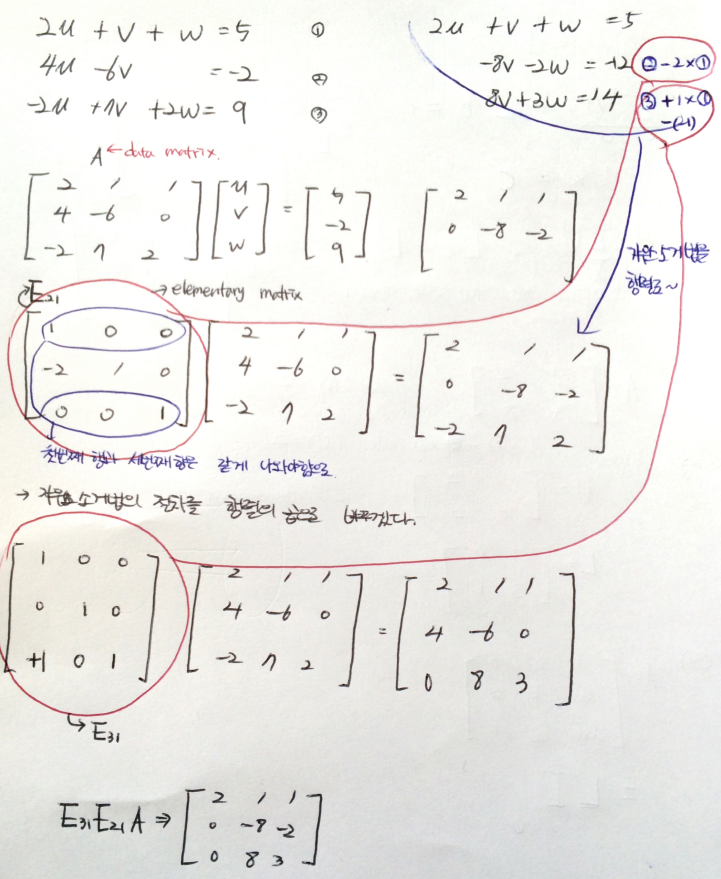 2u + v + w = 5 ①
4u -6v = -2 ②
-2u +7v +2w = 9 ③
2u + v + w = 5
-8v -2w = -12 ②-2×①
8v+3w = 14 ③+1×①
-(-1)
A ← data matrix.
2 1 1 u 5
4 -6 0 v = -2
-2 7 2 w 9
2 1 1
0 -8 -2
가우스 소거법을
행렬로~
E21 → elementary matrix
1 0 0 2 1 1 2 1 1
-2 1 0 4 -6 0 = 0 -8 -2
0 0 1 -2 7 2 -2 7 2
첫번째 행과 세번째 행은 같게 나와야함으로
→ 가우스 소거법의 절차를 행렬의 곱으로 바꾸겠다.
1 0 0 2 1 1 2 1 1
0 1 0 4 -6 0 = 4 -6 0
+1 0 1 -2 7 2 0 8 3
↳ E31
E31E21A ⇒ 2 1 1
0 -8 -2
0 8 3